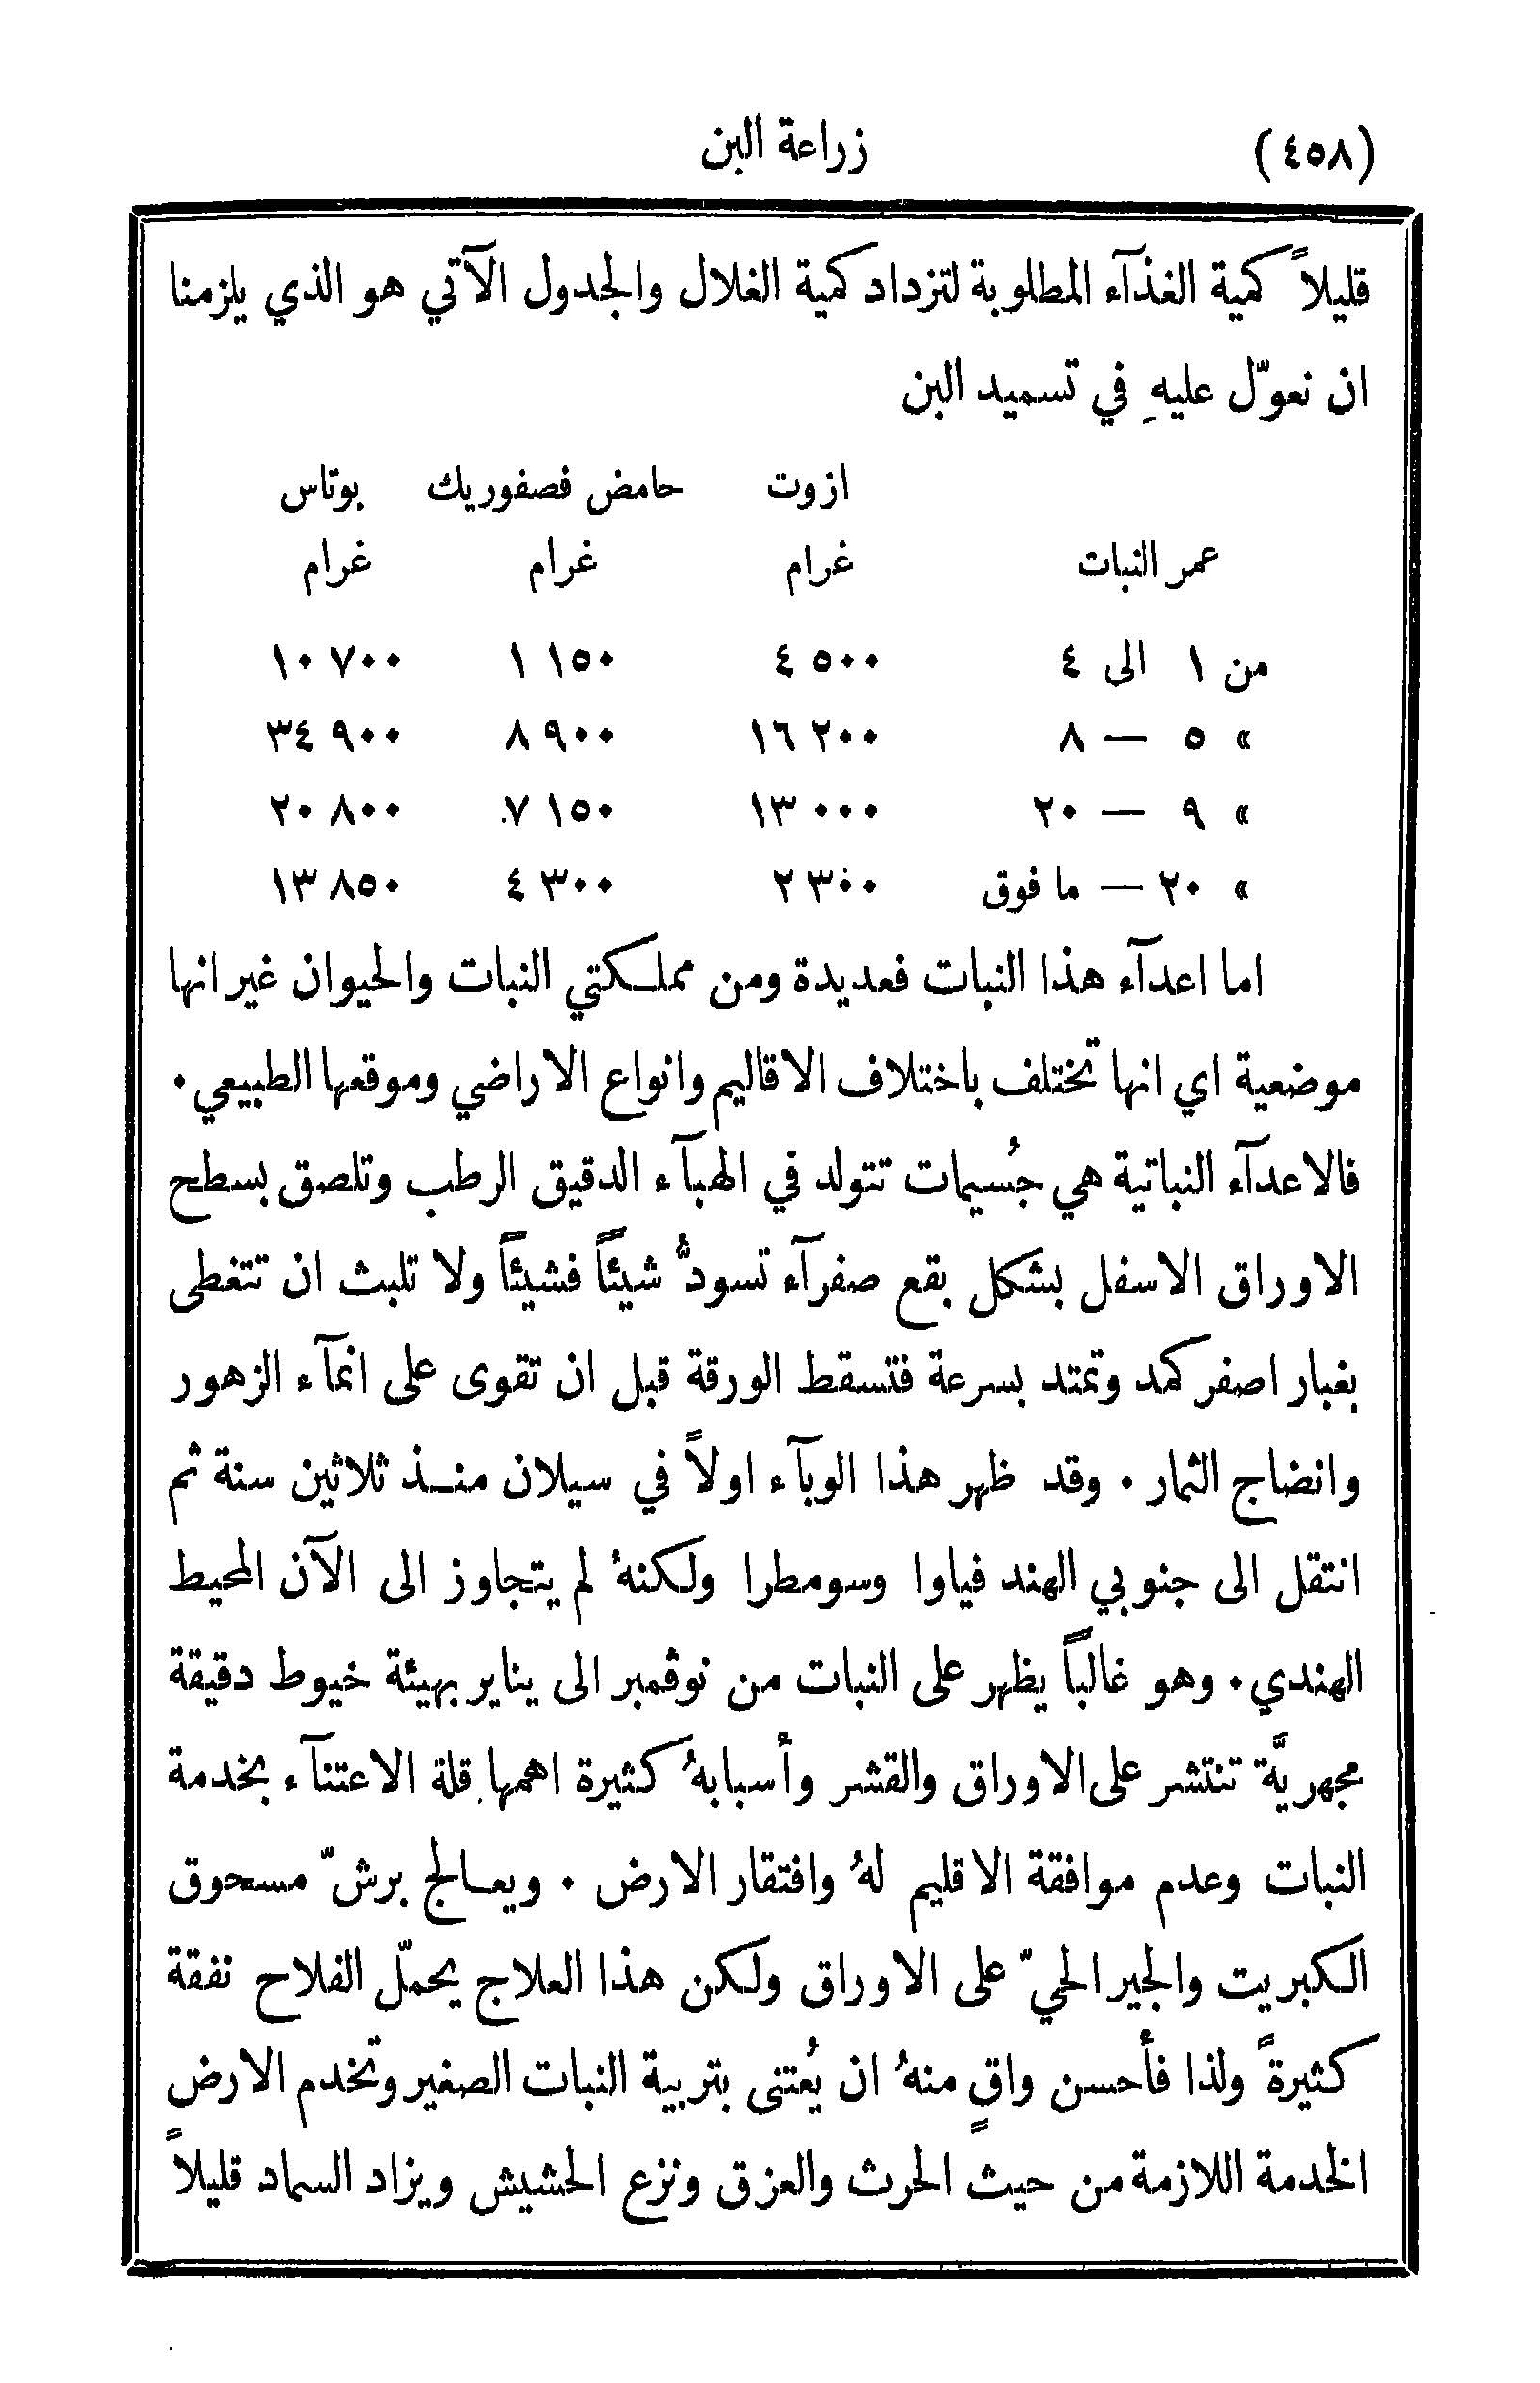 (٤٥٨) زراعة البن
قليلاً كمية الغذآء المطلوبة لتزداد كمية الغلال والجدول الآتي هو الذي يلزمنا
ان نعوّل عليهِ في تسميد البن
ازوت حامض فصفوريك بوتاس
عمر النبات غرام غرام غرام
من ١ الى ٤ ٤ ٥٠٠ ١ ١٥٠ ١٠ ٧٠٠
» ٥ — ٨ ١٦ ٢٠٠ ٨ ٩٠٠ ٣٤ ٩٠٠
» ٩ — ٢٠ ١٣ ٠٠٠ ٧ ١٥٠ ٢٠ ٨٠٠
» ٢٠ — ما فوق ٢ ٣٠٠ ٤ ٣٠٠ ١٣ ٨٥٠
اما اعدآء هذا النبات فعديدة ومن مملكتي النبات والحيوان غير انها
موضعية اي انها تختلف باختلاف الاقاليم وانواع الاراضي وموقعها الطبيعي ٠
فالاعدآء النباتية هي جُسيمات تتولد في الهبآء الدقيق الرطب وتلصق بسطح
الاوراق الاسفل بشكل بقع صفرآء تسودُّ شيئاً فشيئاً ولا تلبث ان تتغطى
بغبار اصفر كمد وتمتد بسرعة فتسقط الورقة قبل ان تقوى على انمآء الزهور
وانضاج الثمار ٠ وقد ظهر هذا الوبآء اولاً في سيلان منــذ ثلاثين سنة ثم
انتقل الى جنوبي الهند فياوا وسومطرا ولكنهُ لم يتجاوز الى الآن المحيط
الهندي ٠ وهو غالباً يظهر على النبات من نوڤمبر الى يناير بهيئة خيوط دقيقة
مجهريَّة تنتشر على الاوراق والقشر وأسبابهُ كثيرة اهمها قلة الاعتنآء بخدمة
النبات وعدم موافقة الاقليم لهُ وافتقار الارض ٠ ويعــالج برشّ مسحوق
الكبريت والجير الحيّ على الاوراق ولكن هذا العلاج يحمّل الفلاح نفقة
كثيرةً ولذا فأحسن واقٍ منهُ ان يُعتنى بتربية النبات الصغير وتخدم الارض
الخدمة اللازمة من حيث الحرث والعزق ونزع الحشيش ويزاد السماد قليلاً